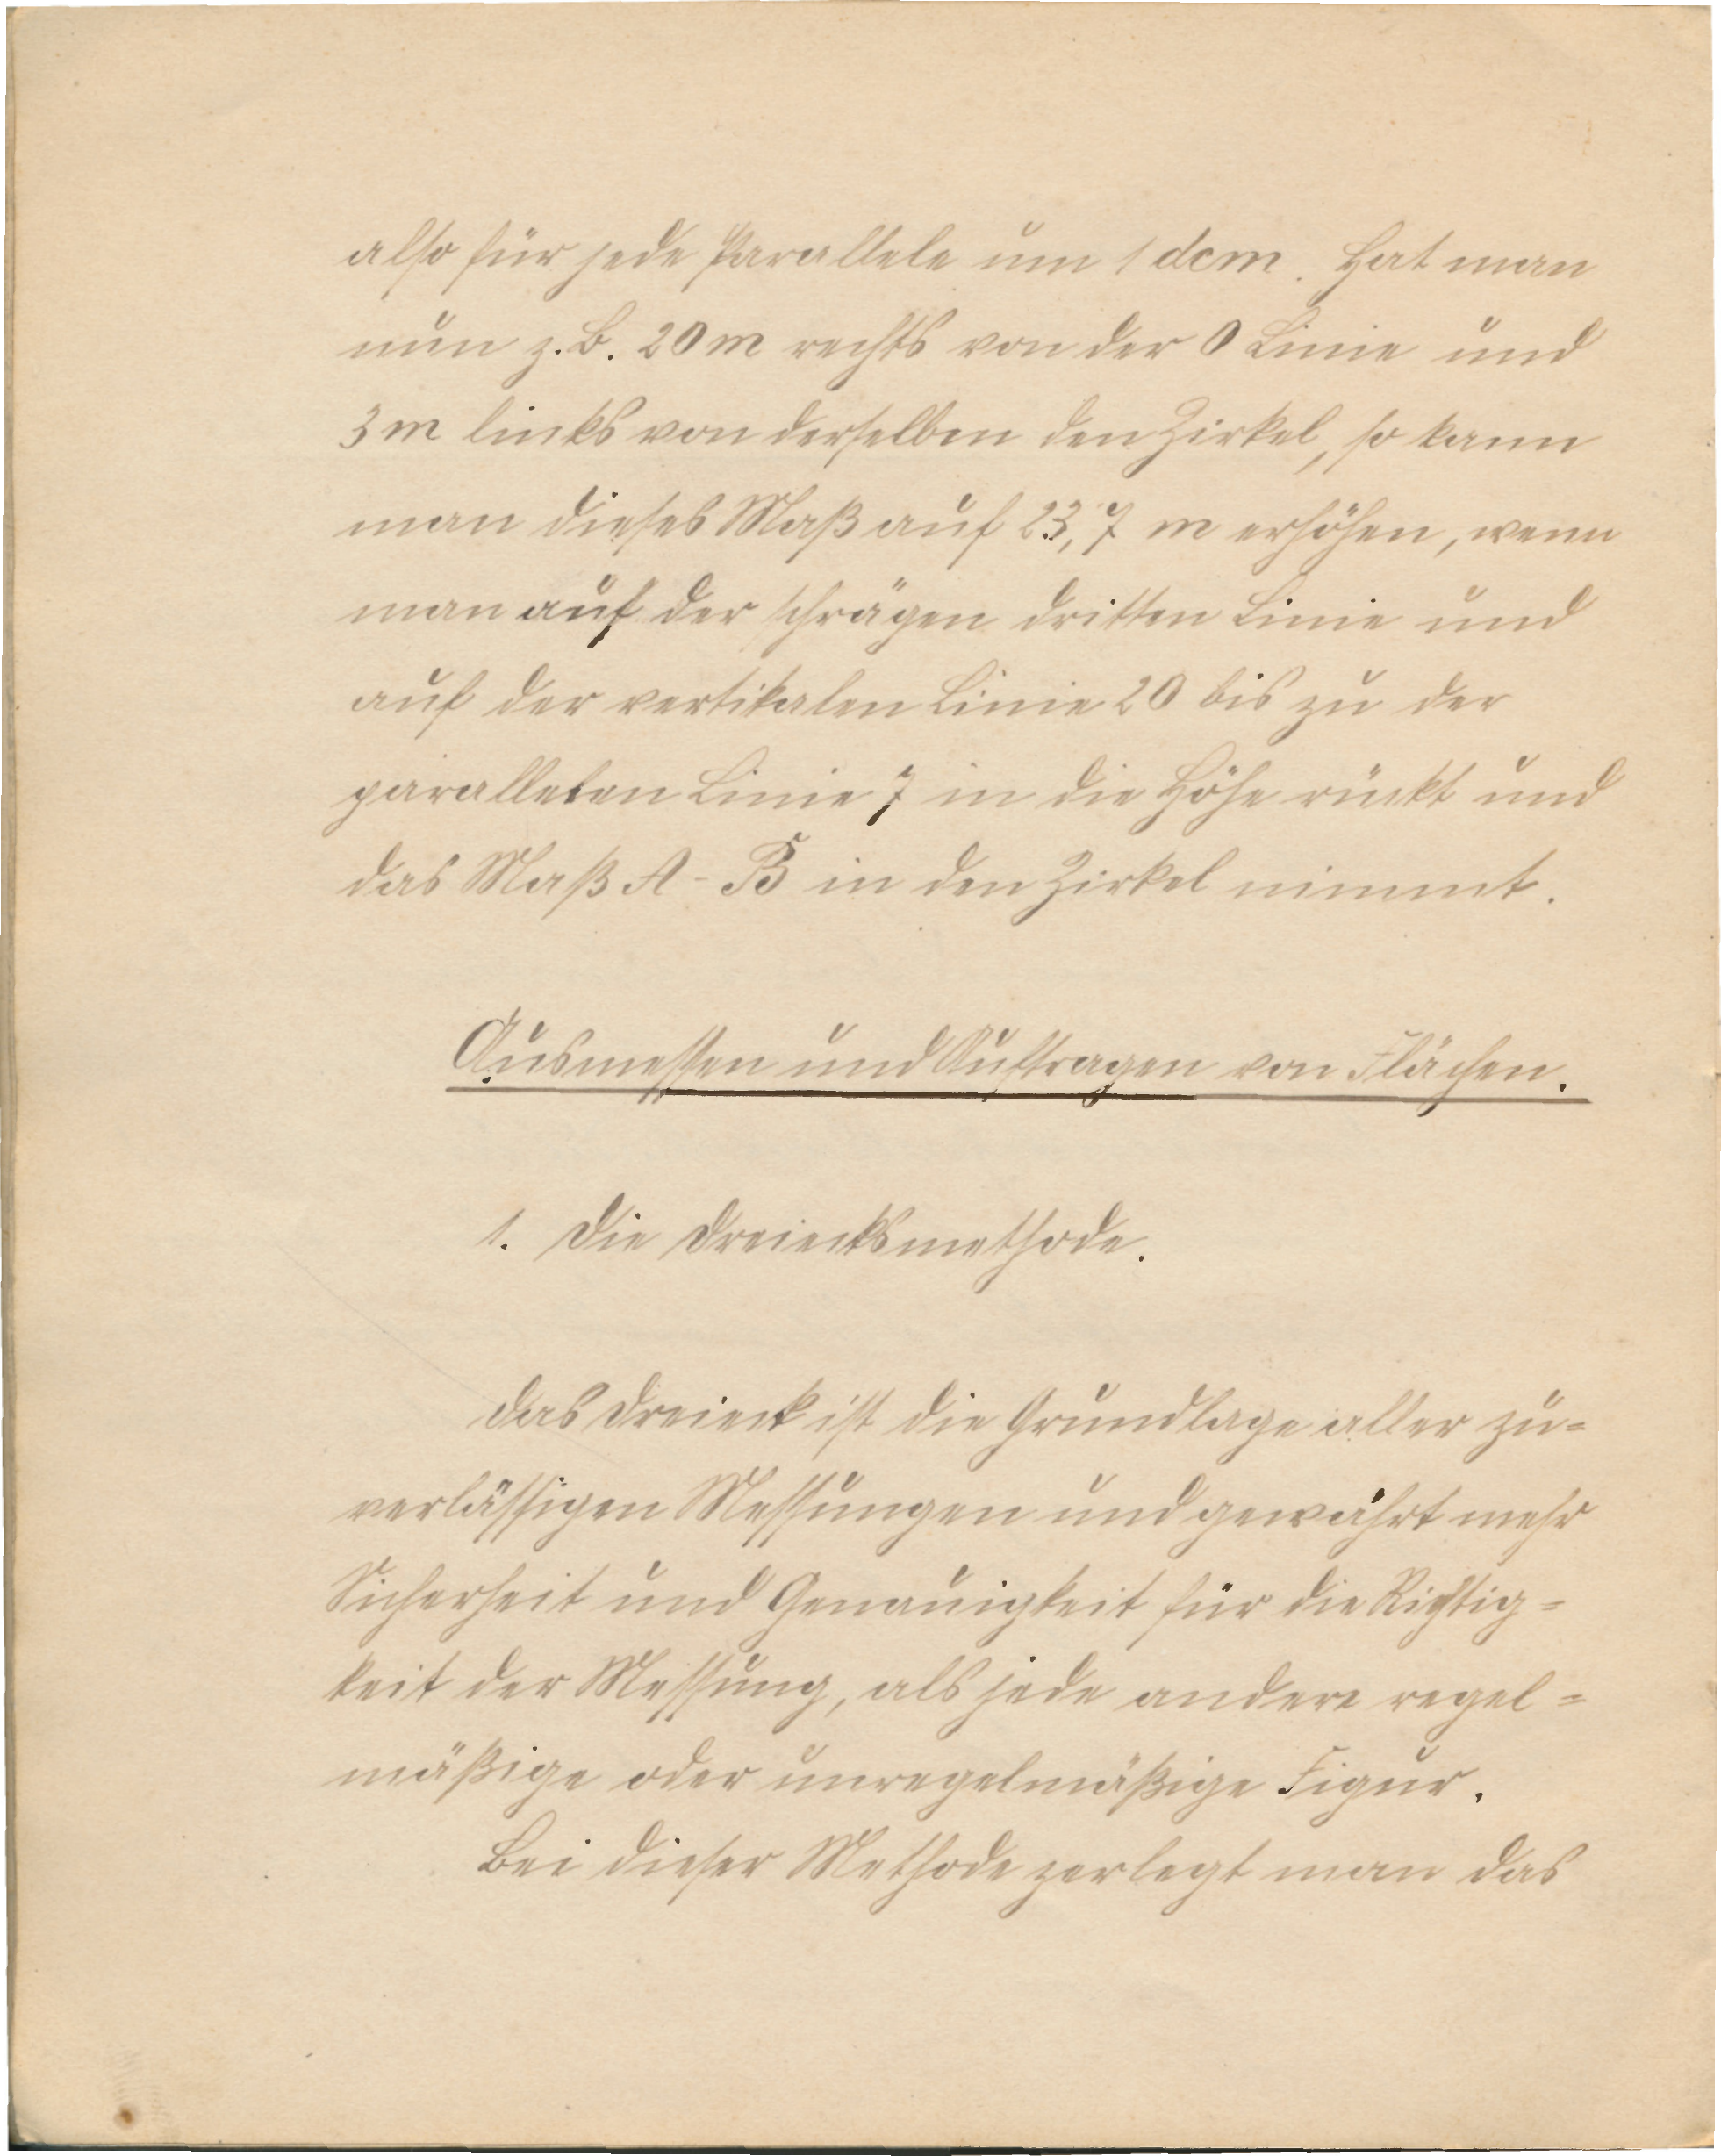 also für jede Parallele um 1 dcm. Hat man
nun z. B. 20 m rechts von der 0 Linie und
3 m links von derselben den Zirkel, so kann
man dieses Maß auf 23,7 m erhöhen, wenn
man auf der schrägen dritten Linie und
auf der vertikalen Linie 20 bis zu der
parallelen Linie 7 in die Höhe rückt und
das Maß A - B in den Zirkel nimmt.
Ausmessen und Auftragen von Flächen.
1. Die Dreiecksmethode.
Das Dreieck ist die Grundlage aller zu=
verlässigen Messungen und gewährt mehr
Sicherheit und Genauigkeit für die Richtig=
keit der Messung, als jede andere regel=
mäßige oder unregelmäßige Figur.
Bei dieser Methode zerlegt man das